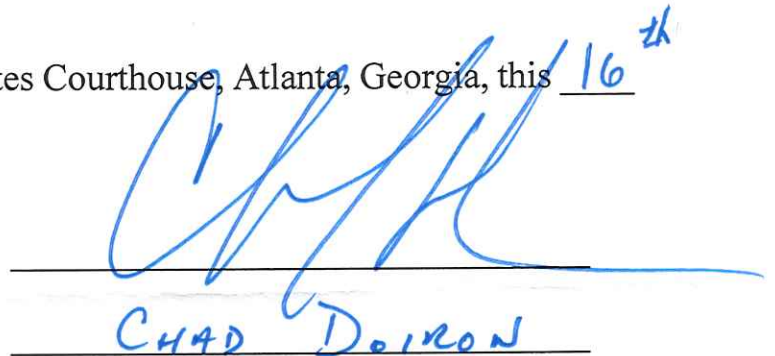 tes Courthouse, Atlanta, Georgia, this 16th
CHAD DOIRON